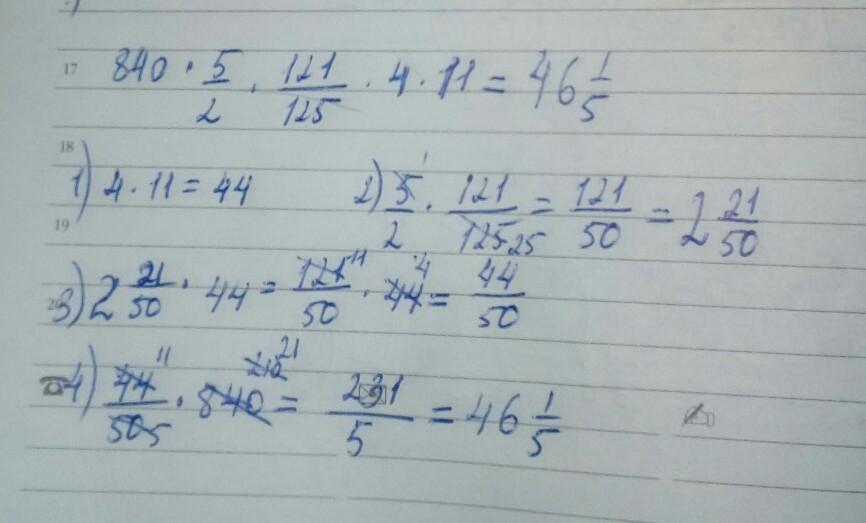 17 840 · 5/2 · 121/125 · 4 · 11 = 46 1/5
18
1) 4 · 11 = 44 2) 5/2 · 121/125 = 121/50 = 2 21/50
1 25
19
3) 2 21/50 · 44 = 121/50 · 44 = 44/50
11 4
4) 44/50 · 840 = 231/5 = 46 1/5
11 5 210 21